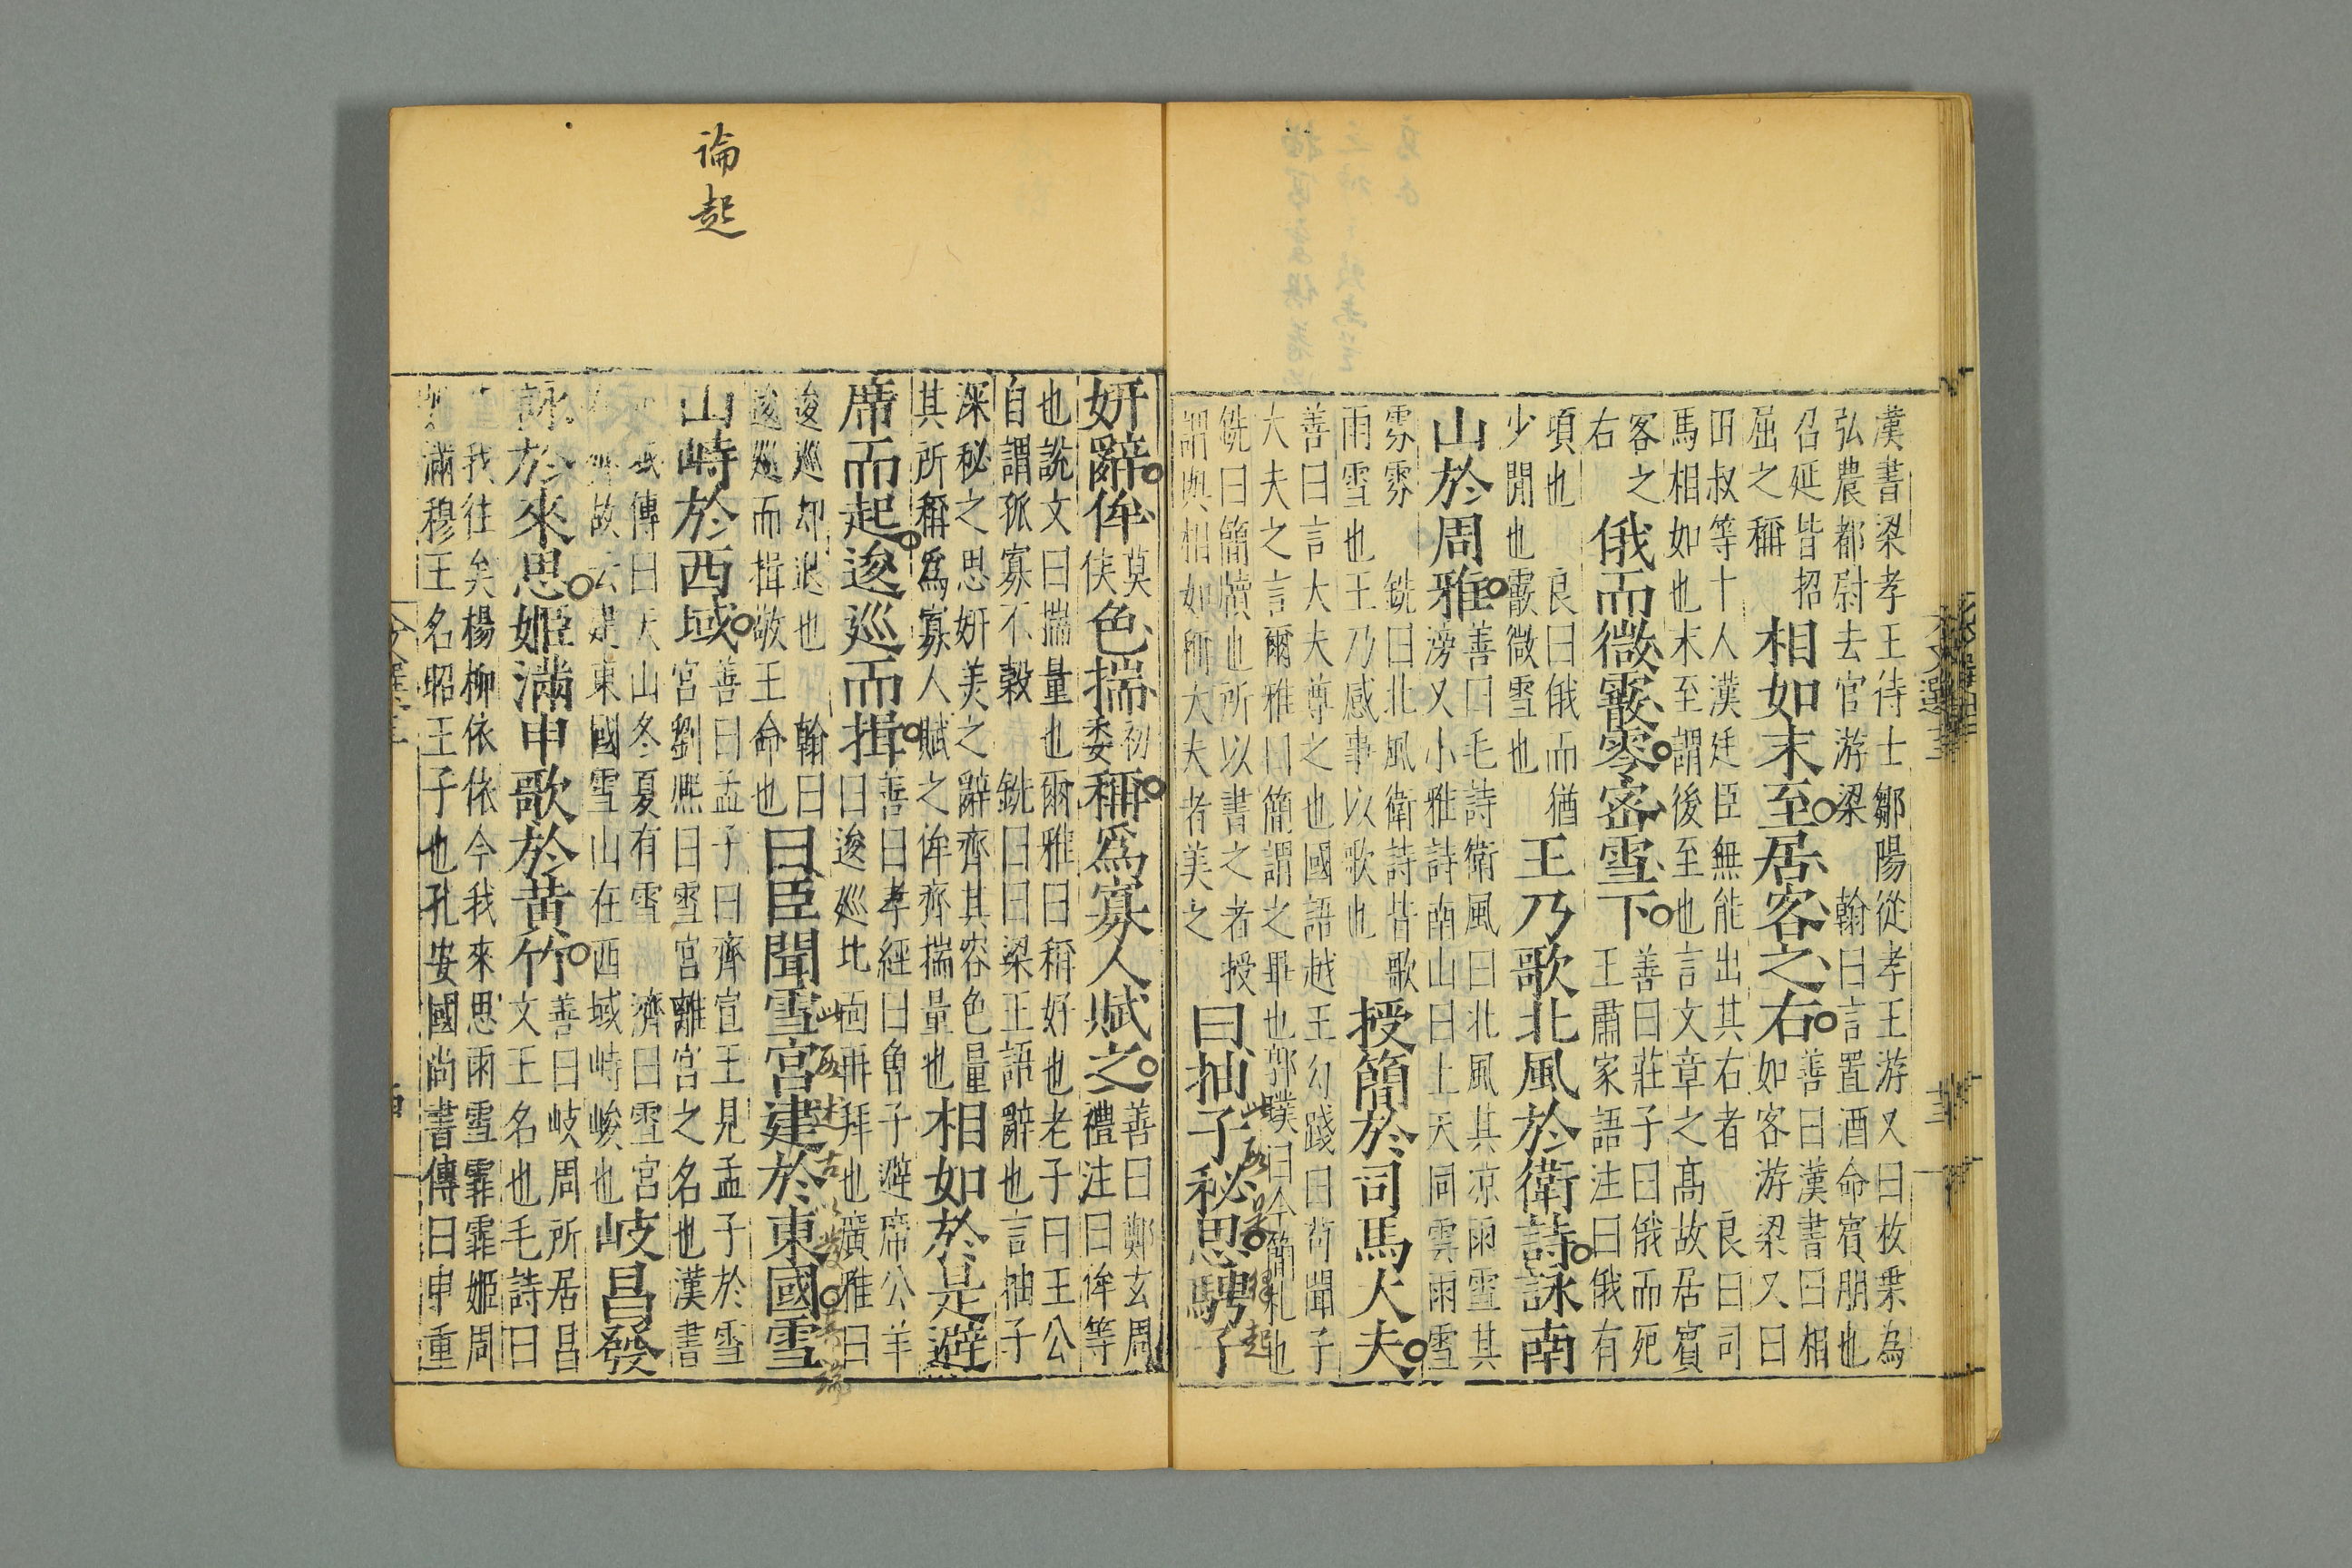 漢書梁孝王待士鄒陽從孝王游又曰枚乗為
弘農都尉去官游梁　翰曰言置酒命賓朋也
召延皆招
屈之稱
相如末至居客之右
善曰漢書曰相
如客游梁又曰
田叔等十人漢廷臣無能出其右者　良曰司
馬相如也末至謂後至也言文章之髙故居賓
客之
右
俄而微霰零密雪下
善曰莊子曰俄而死
王肅家語注曰俄有
頃也　良曰俄而猶
少閒也霰微雪也
王乃歌北風於衛詩詠南
山於周雅
善曰毛詩衛風曰北風其凉雨雪其
滂又小雅詩南山曰上天同雲雨雪
雰雰　銑曰北風衛詩昔歌
雨雪也王乃感事以歌也
授簡於司馬大夫
善曰言大夫尊之也國語越王勾踐曰茍聞子
大夫之言爾雅曰簡謂之畢也郭璞曰今簡札也
銑曰簡牘也所以書之者授
謂與相如稱大夫者美之
曰抽子秘思騁子
此段是緣起
妍辭侔
莫
侯
色揣
初
委
稱爲寡人賦之
善曰鄭玄周
禮注曰侔等
也説文曰揣量也爾雅曰稱好也老子曰王公
自謂孤寡不榖　銑曰曰梁王語辭也言抽子
深秘之思妍美之辭齊其容色量
其所稱爲寡人賦之侔齊揣量也
相如於是避
席而起逡巡而揖
善曰孝經曰魯子避席公羊
曰逡巡北面再拜也廣雅曰
逡巡却退也　翰曰
逡巡而揖敬王命也
曰臣聞雪宮建於東國雪
論起
山峙於西域
善曰孟子曰齊宣王見孟子於雪
宮劉熈曰雪宮離宮之名也漢書
域傳曰天山冬夏有雪　濟曰雪宮
齊故云建東國雪山在西域峙峻也
岐昌發
詠於來思姬滿申歌於黄竹
善曰岐周所居昌
文王名也毛詩曰
我往矣楊柳依依今我來思雨雪霏霏姬周
滿穆王名昭王子也孔安國尚書傳曰申重